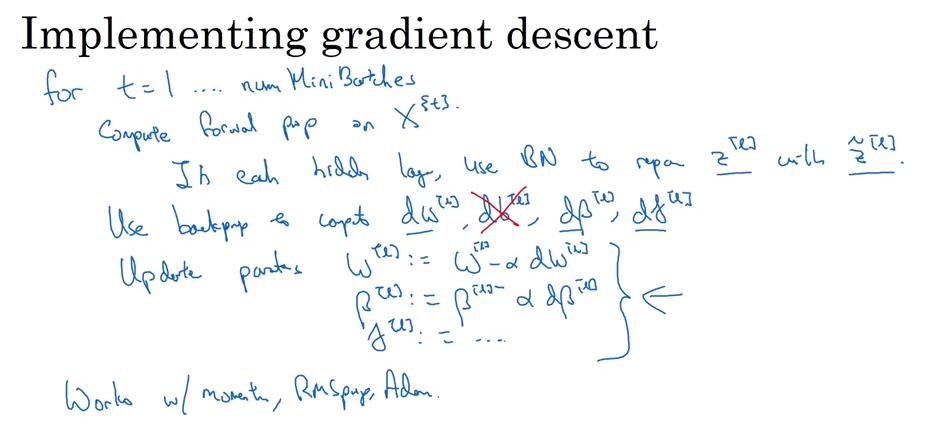 Implementing gradient descent
for t = 1 .... num Mini Batches
Compute forward prop on X^{t}.
In each hidden lay, use BN to repar z^[l] with z̃^[l].
Use backprop to compute dW^[l], db^[l], dβ^[l], dγ^[l]
Update params W^[l] := W^[l] - α dW^[l]
β^[l] := β^[l] - α dβ^[l]
γ^[l] := ....
Works w/ momentum, RMSprop, Adam.